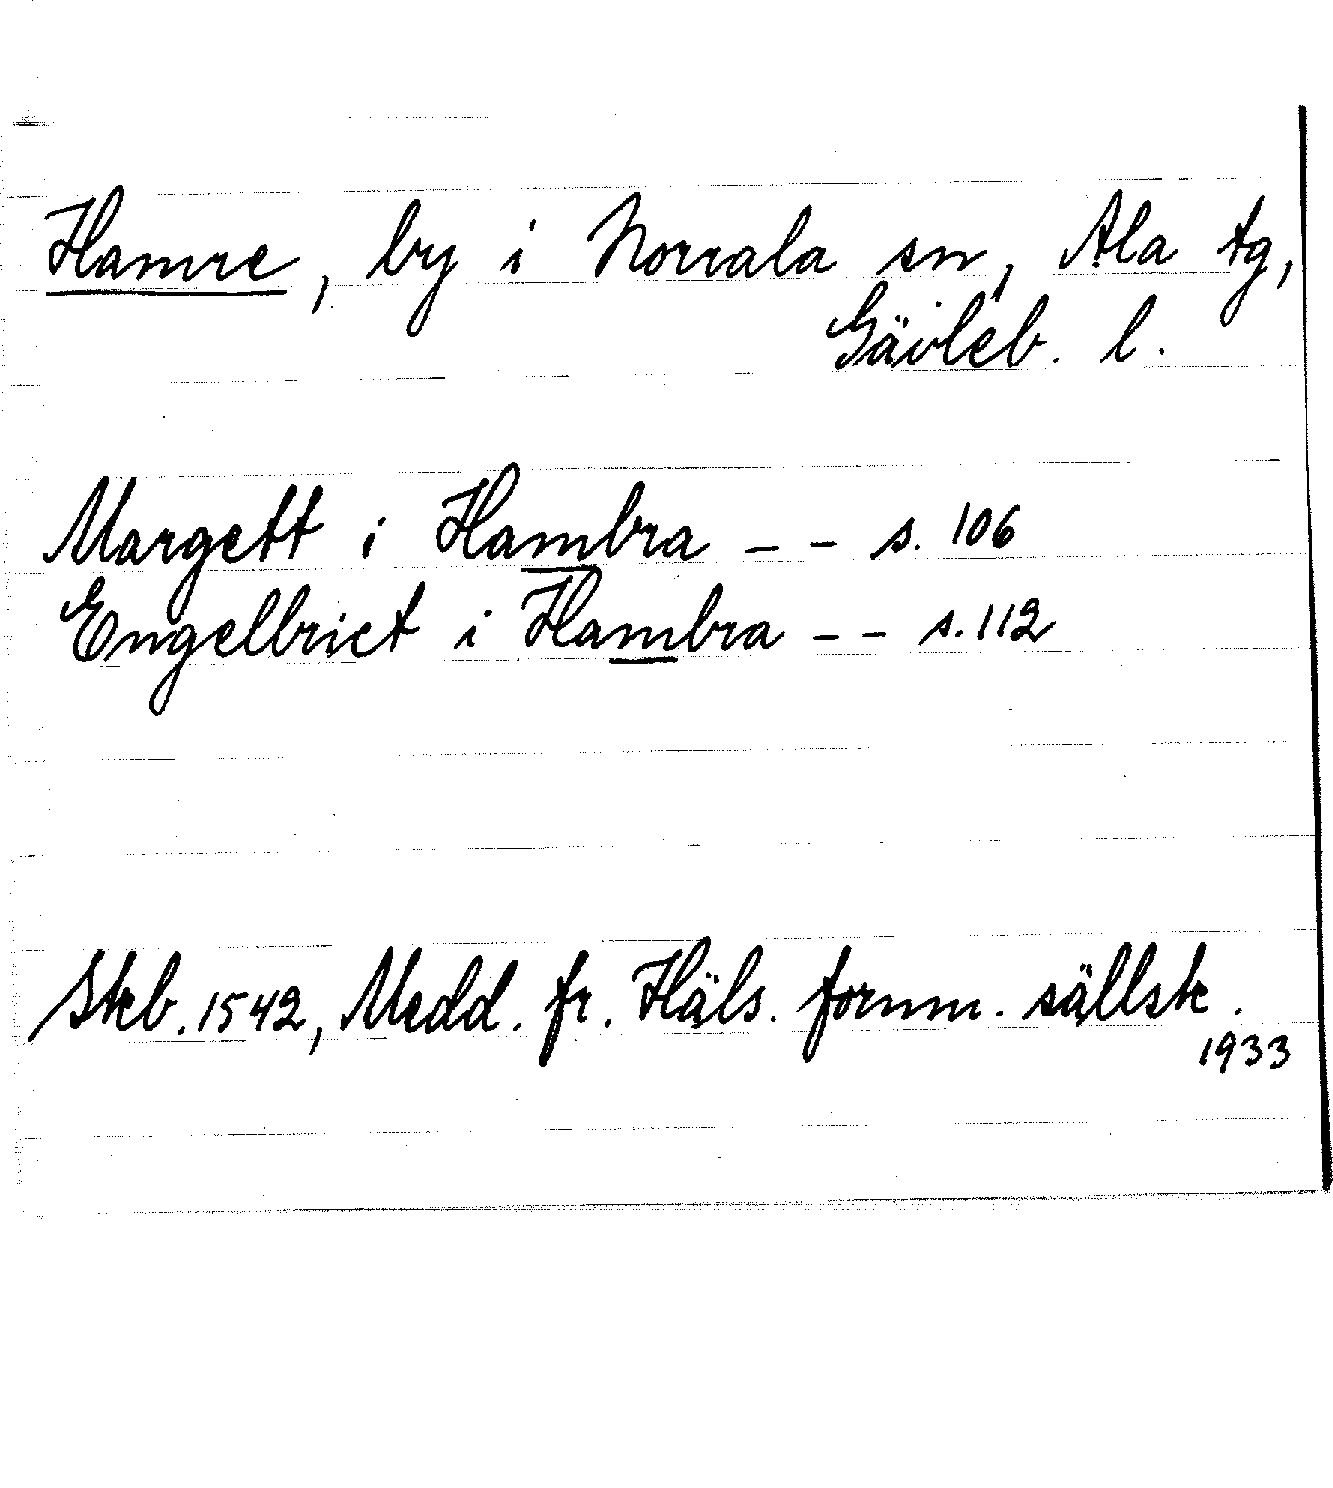 Hamre, by i Norrala sn, Ala tg,
Gävleb. l.
Margett i Hambra -- s. 106
Engelbrict i Hambra -- s. 112
Skb. 1542, Medd. fr. Häls. fornm. sällsk.
1933